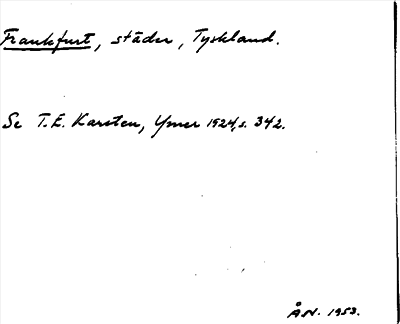 Frankfurt, städer, Tyskland.
Se T.E. Karsten, Ymer 1924, s. 342.
ÅN. 1953.